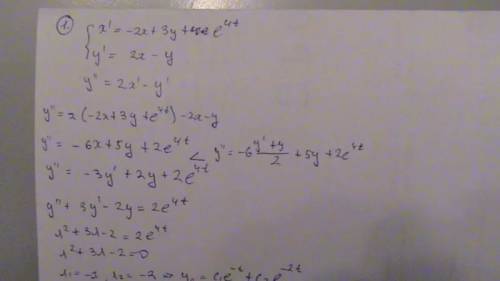 1.
{ x' = -2x + 3y + e^{4t}
y' = 2x - y
y'' = 2x' - y'
y'' = 2(-2x+3y+e^{4t}) - 2x - y
y'' = -6x + 5y + 2e^{4t} < y'' = -6 \frac{y'+y}{2} + 5y + 2e^{4t}
y'' = -3y' + 2y + 2e^{4t}
y'' + 3y' - 2y = 2e^{4t}
λ² + 3λ - 2 = 2e^{4t}
λ² + 3λ - 2 = 0